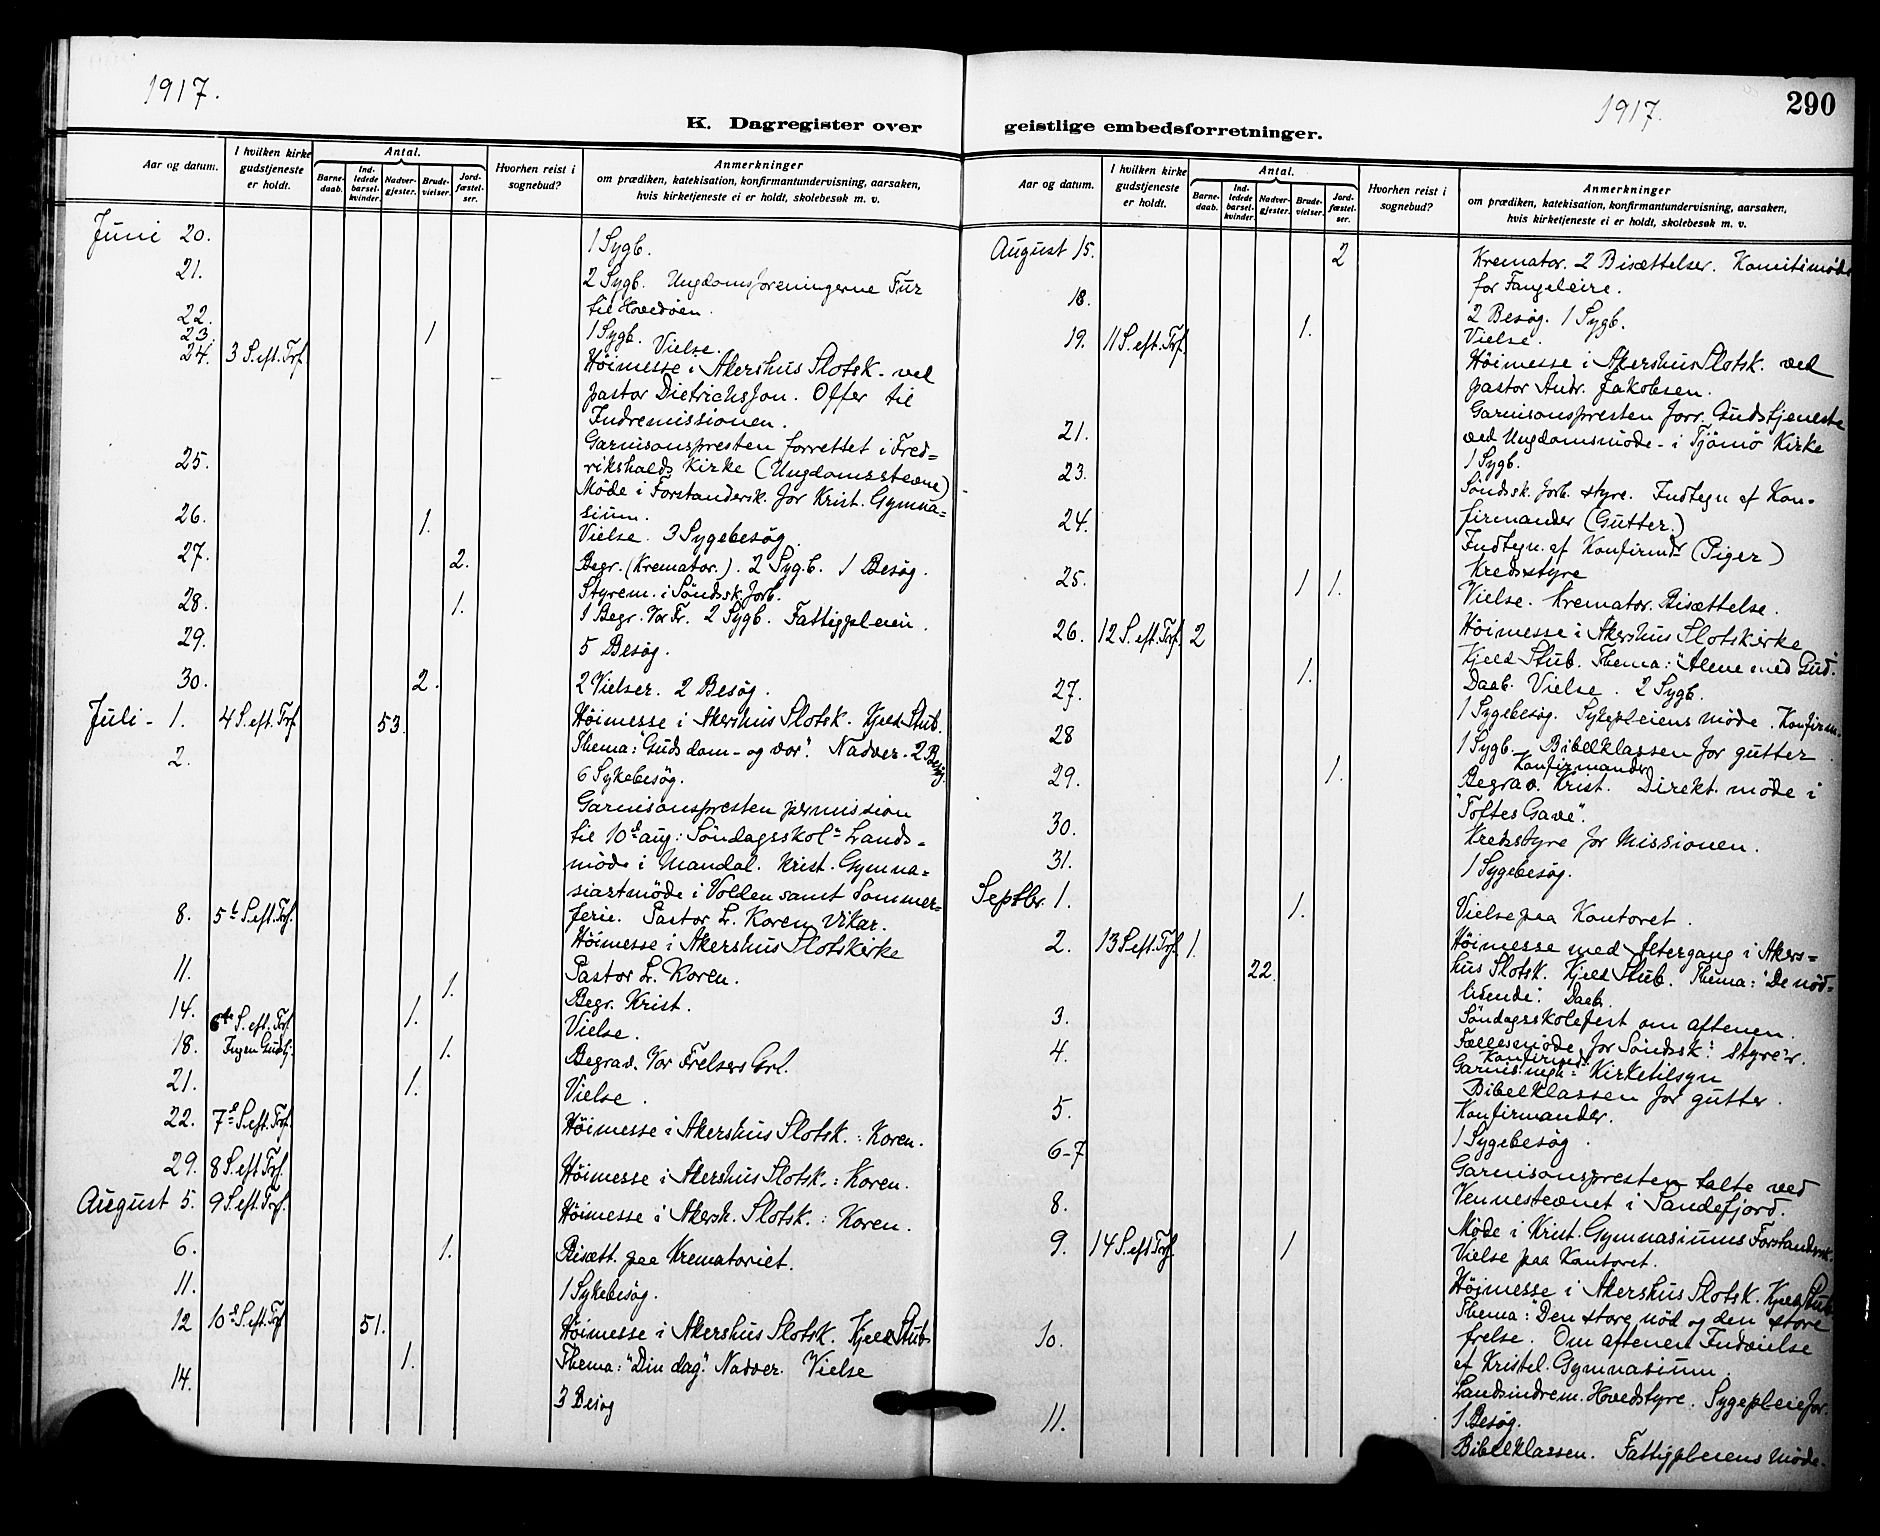 1917.
K. Dagregister over
Aar og datum.
I hvilken kirke gudstjeneste er holdt.
Antal.
Barnedaab.
Indledede barselkvinder.
Nadvergjester.
Brudevielser.
Jordfæstelser.
Hvorhen reist i sognebud?
Anmerkninger
om prædiken, katekisation, konfirmantundervisning, aarsaken, hvis kirketjeneste ei er holdt, skolebesøk m. v.
Juni 20. 1 Sygb.
21. 2 Sygb. Ungdomsforeningerne Tur
til Hovedøen.
22. 1 Sygb.
23. 1 Vielse.
24. 3 S. eft. Trf. Høimesse i Akershus Slotsk. ved
pastor Dietrichson. Offer til
Indremissionen.
Garnisonspresten forrettet i Fred=
rikshalds Kirke (Ungdomsstevne)
25. Møde i Forstandersk. for Krist. Gymna=
sium.
26. 1. Vielse. 3 Sygebesøg.
27. 2. Begr. (Kremator.). 2 Syg.b. 1 Besøg.
Styrem. i Søndssk.forb.
28. 1. 1 Begr. Vor Fr. 2 Sygb. Fattigpleien.
29. 5 Besøg.
30. 2. 2 Vielser. 2 Besøg.
Juli - 1. 4 S. eft. Trf. 53. Høimesse i Akershus Slotsk. Kjeld Stub.
Thema: "Guds dom - og vor". Nadver. 2 Besøg.
2. 6 Sykebesøg.
Garnisonspresten permission
til 10d aug: Søndagsskol= Lands=
møde i Mandal. Krist. Gymna=
siastmøde i Volden samt Sommer=
ferie. Pastor L. Koren Vikar.
8. 5t S. eft. Trf. Høimesse i Akershus Slotskirke
Pastor L. Koren.
11. 1. Begr. Krist.
14. 1. Vielse.
6te S. eft. Trf.
Ingen Gudstj.
18. 1. Begrav. Vor Frelsers Grl.
21. 1. Vielse.
22. 7d S. eft. Trf. Høimesse i Akershus Slotsk.: Koren.
29. 8 S. eft Trf. Høimesse i Akershus Slotsk.: Koren.
August 5. 9 S. eft. Trf. Høimesse i Akersh. Slotsk.: Koren.
6. 1. Bisætt. paa Krematoriet.
11. 1 Sykebesøg.
12 10d S. eft. Trf 51. Høimesse i Akershus Slotsk. Kjeld Stub.
1. Thema: "Din dag". Nadver. Vielse
14. 3 Besøg
1917.
290
geistlige embedsforretninger.
Aar og datum.
I hvilken kirke gudstjeneste er holdt.
Antal.
Barnedaab.
Indledede barselkvinder.
Nadvergjester.
Brudevielser.
Jordfæstelser.
Hvorhen reist i sognebud?
Anmerkninger
om prædiken, katekisation, konfirmantundervisning, aarsaken, hvis kirketjeneste ei er holdt, skolebesøk m. v.
August 15. 2 Kremator. 2 Bisættelser. Komitémøde
for Fangeleire.
18. 2 Besøg. 1 Sygb.
1. Vielse.
19. 11 S. eft. Trf. Høimesse i Akershus Slotsk. ved
pastor Andr. Jakobsen.
Garnisonspresten forr. Gudstjeneste
ved Ungdomsmøde - i Tjømø Kirke
21. 1 Sygb.
23. Søndssk. forb. styre. Indtegn af Kon-
firmander (Gutter.)
24. Indtegn. af Konfirmdr (Piger)
Kredsstyre
25. 1 1. Vielse. Kremator. Bisættelse.
26. 12 S. eft. Trf. 2 Høimesse i Akershus Slotskirke
Kjeld Stub. Thema: "Alene med Gud".
1. Daab. Vielse. 2 Sygb.
27. 1 Sygebesøg. Sykepleiens møde. Konfirm.
28 1 Sygb. Bibelklassen for gutter.
Konfirmander
29. 1. Begrav. Krist. Direkt. møde i
"Toftes Gave".
30. Kredsstyre for Missionen.
31. 1 Sygebesøg.
Septbr. 1. 1. Vielse paa Kontoret.
2. 13 S. eft. Trf. 1. Høimesse med Altergang i Akers=
22. hus Slotsk. Kjeld Stub. Thema: "De nød=
lidende". Daab.
3. Søndagsskolefest om aftenen.
4. Fællesmøde for Søndsk: styre'r.
Konfirmdr.
Garnis.mgh: Kirketilsyn
Bibelklassen for gutter.
5. Konfirmander.
1 Sygebesøg.
6-7 Garnisonspresten talte ved
Vennestevnet i Sandefjord.
8. Møde i Krist. Gymnasiums Forstandersk.
1 Vielse paa Kontoret.
9. 14 S. eft Trf. Høimesse i Akershus Slotsk. Kjeld Stub
Thema: "Den store nød og den store
frelse. Om aftenen Indvielse
af Kristel. Gymnasium.
10. Landsindrem. Hovedstyre. Sygepleiefor.
1 Besøg.
11. Bibelklassen. Fattigpleiens Møde.